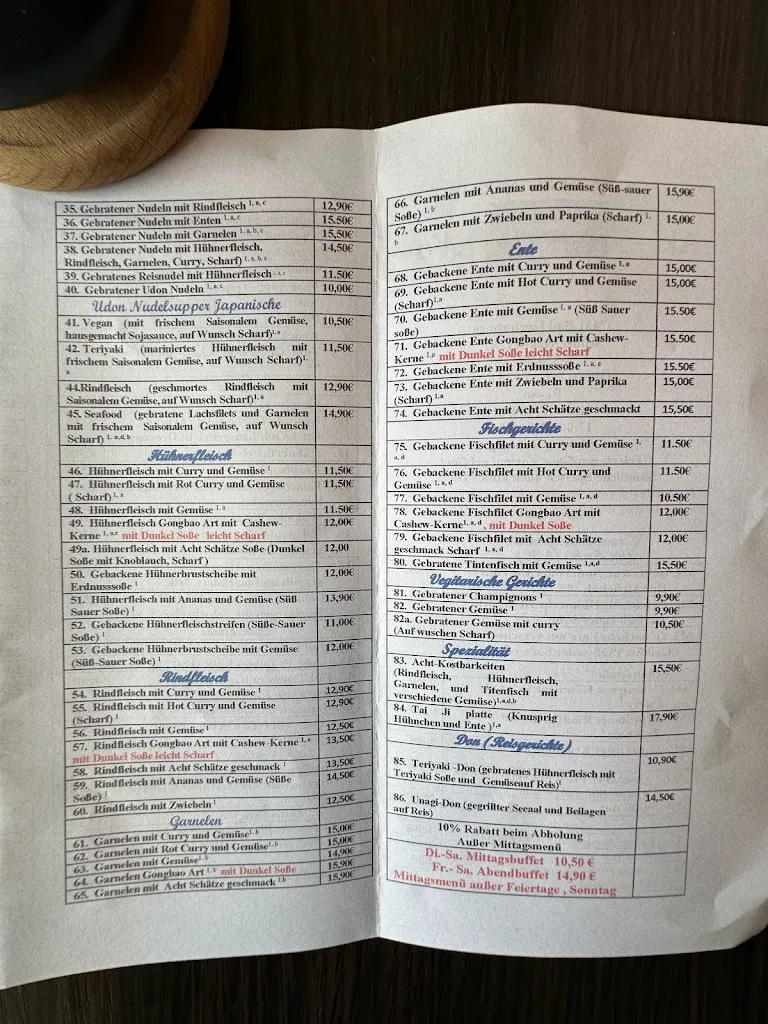 35. Gebratener Nudeln mit Rindfleisch 1, a, c 12,90€
36. Gebratener Nudeln mit Enten 1, a, c 15.50€
37. Gebratener Nudeln mit Garnelen 1, a, b, c 15,50€
38. Gebratener Nudeln mit Hühnerfleisch, 14,50€
Rindfleisch, Garnelen, Curry, Scharf) 1, a, b, c
39. Gebratenes Reisnudel mit Hühnerfleisch 11.50€
40. Gebratener Udon Nudeln 1, a, c 10,00€
Udon Nudelsupper Japanische
41. Vegan (mit frischem Saisonalem Gemüse, 10,50€
hausgemacht Sojasauce, auf Wunsch Scharf)1,a
42. Teriyaki (mariniertes Hühnerfleisch mit 11,50€
frischem Saisonalem Gemüse, auf Wunsch Scharf)1,
a
44.Rindfleisch (geschmortes Rindfleisch mit 12,90€
Saisonalem Gemüse, auf Wunsch Scharf)1, a
45. Seafood (gebratene Lachsfilets und Garnelen 14,90€
mit frischem Saisonalem Gemüse, auf Wunsch
Scharf) 1, a,d,b
Hühnerfleisch
46. Hühnerfleisch mit Curry und Gemüse 1 11,50€
47. Hühnerfleisch mit Rot Curry und Gemüse 11,50€
( Scharf)1, a
48. Hühnerfleisch mit Gemüse 1, a 11.50€
49. Hühnerfleisch Gongbao Art mit Cashew- 12,00€
Kerne 1, a,e mit Dunkel Soße leicht Scharf
49a. Hühnerfleisch mit Acht Schätze Soße (Dunkel 12,00
Soße mit Knoblauch, Scharf )
50. Gebackene Hühnerbrustscheibe mit 12,00€
Erdnusssoße 1
51. Hühnerfleisch mit Ananas und Gemüse (Süß 13,90€
Sauer Soße) 1
52. Gebackene Hühnerfleischstreifen (Süße-Sauer 11,00€
Soße) 1
53. Gebackene Hühnerbrustscheibe mit Gemüse 12.00€
(Süß-Sauer Soße) 1
Rindfleisch
54. Rindfleisch mit Curry und Gemüse 1 12,90€
55. Rindfleisch mit Hot Curry und Gemüse 12,90€
(Scharf) 1
56. Rindfleisch mit Gemüse 1 12,50€
57. Rindfleisch Gongbao Art mit Cashew-Kerne 1, e 13,50€
mit Dunkel Soße leicht Scharf
58. Rindfleisch mit Acht Schätze geschmack 1 13,50€
59. Rindfleisch mit Ananas und Gemüse (Süße 14,50€
Soße) 1
60. Rindfleisch mit Zwiebeln 1 12,50€
Garnelen
61. Garnelen mit Curry und Gemüse1, b 15,00€
62. Garnelen mit Rot Curry und Gemüse1, b 15,00€
63. Garnelen mit Gemüse1, b 14,90€
64. Garnelen Gongbao Art 1, b mit Dunkel Soße 15,90€
65. Garnelen mit Acht Schätze geschmack 1,b 15,90€
66. Garnelen mit Ananas und Gemüse (Süß-sauer 15,90€
Soße) 1, b
67. Garnelen mit Zwiebeln und Paprika (Scharf) 1, 15,00€
b
Ente
68. Gebackene Ente mit Curry und Gemüse 1, a 15,00€
69. Gebackene Ente mit Hot Curry und Gemüse 15,00€
(Scharf)1.a
70. Gebackene Ente mit Gemüse 1, a (Süß Sauer 15.50€
soße)
71. Gebackene Ente Gongbao Art mit Cashew- 15.50€
Kerne 1,a mit Dunkel Soße leicht Scharf
72. Gebackene Ente mit Erdnusssoße 1, a, e 15.50€
73. Gebackene Ente mit Zwiebeln und Paprika 15,00€
(Scharf) 1.a
74. Gebackene Ente mit Acht Schätze geschmackt 15,50€
Fischgerichte
75. Gebackene Fischfilet mit Curry und Gemüse 1, 11.50€
a, d
76. Gebackene Fischfilet mit Hot Curry und 11.50€
Gemüse 1, a, d
77. Gebackene Fischfilet mit Gemüse 1, a, d 10.50€
78. Gebackene Fischfilet Gongbao Art mit 12,00€
Cashew-Kerne1, a, d , mit Dunkel Soße
79. Gebackene Fischfilet mit Acht Schätze 12,00€
geschmack Scharf 1, a, d
80. Gebratene Tintenfisch mit Gemüse 1,a,d 15,50€
Vegitarische Gerichte
81. Gebratener Champignons 1 9,90€
82. Gebratener Gemüse 1 9,90€
82a. Gebratener Gemüse mit curry 10,50€
(Auf wuschen Scharf)
Spezialität
83. Acht-Kostbarkeiten 15,50€
(Rindfleisch, Hühnerfleisch,
Garnelen, und Titenfisch mit
verschiedene Gemüse)1,a,d,b
84. Tai Ji platte (Knusprig 17,90€
Hühnchen und Ente )1,a
Don ( Reisgerichte)
85. Teriyaki -Don (gebratenes Hühnerfleisch mit 10,90€
Teriyaki Soße und Gemüseauf Reis)1
86. Unagi-Don (gegrillter Seeaal und Beilagen 14,50€
auf Reis)
10% Rabatt beim Abholung
Außer Mittagsmenü
Di.-Sa. Mittagsbuffet 10,50 €
Fr.- Sa. Abendbuffet 14,90 €
Mittagsmenü außer Feiertage , Sonntag